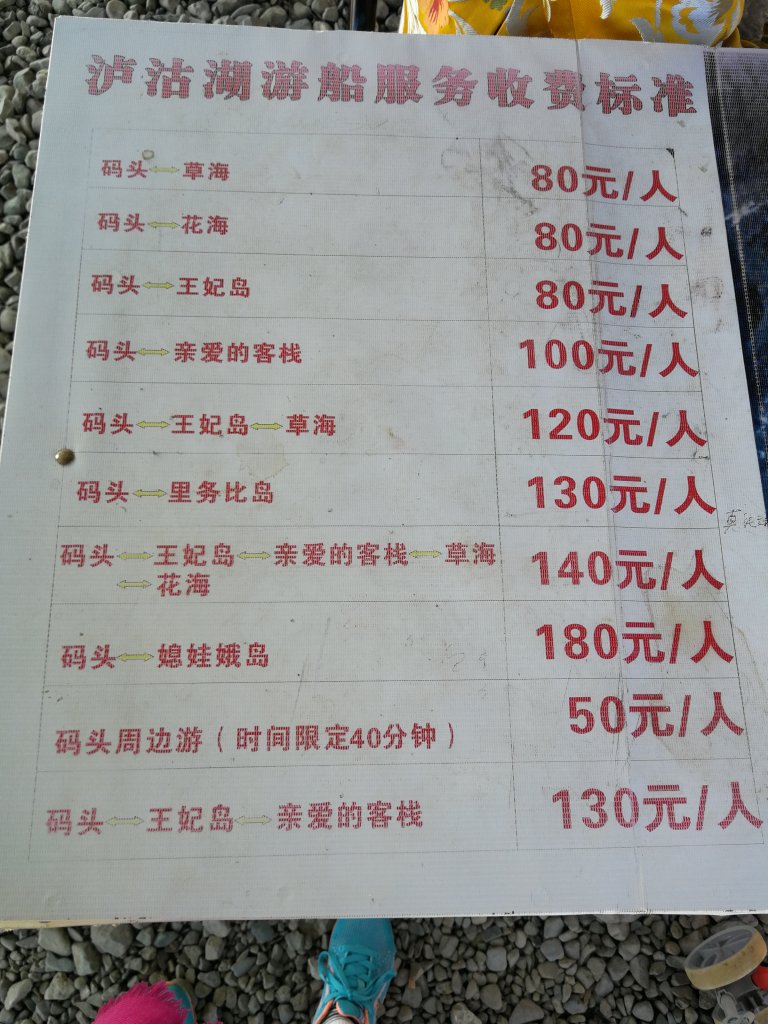 泸沽湖游船服务收费标准
码头⟷草海 80元/人
码头⟷花海 80元/人
码头⟷王妃岛 80元/人
码头⟷亲爱的客栈 100元/人
码头⟷王妃岛⟷草海 120元/人
码头⟷里务比岛 130元/人
码头⟷王妃岛⟷亲爱的客栈⟷草海 140元/人
⟷花海
码头⟷媳娃娥岛 180元/人
码头周边游（时间限定40分钟） 50元/人
码头⟷王妃岛⟷亲爱的客栈 130元/人